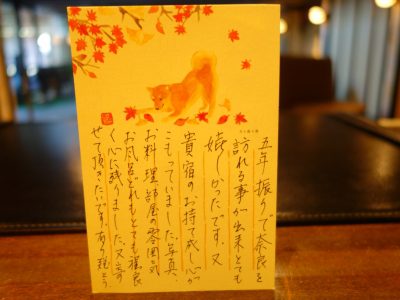 五年振りで奈良を
訪れる事が出来とても
嬉しかったです。又
貴宿のお持て成し心が
こもっていました。写真、
お料理、部屋の雰囲気
お風呂どれもとても
く心に残りました。又寄
せて頂きたいです。有り難とう